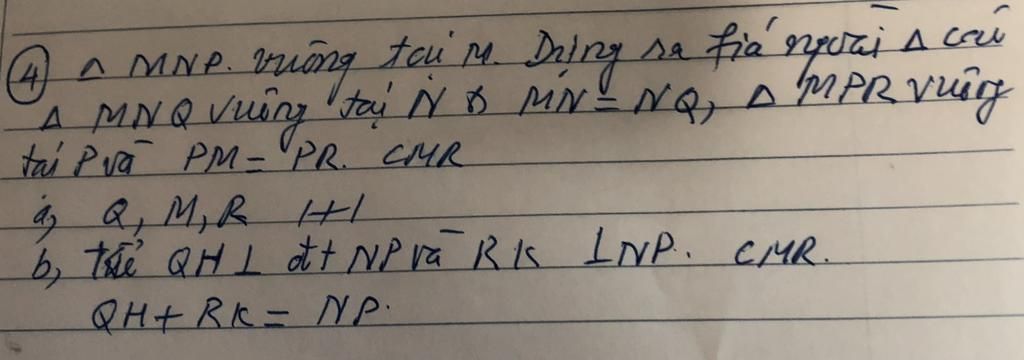 ④ Δ MNP. vuông tại M. Dựng ra phiá ngoài Δ các
Δ MNQ vuông tại N & MN = NQ, Δ MPR vuông
tại P và PM = PR. CMR
a, Q, M, R t+t
b, Kẻ QH ⊥ đt NP và RK ⊥ NP. CMR.
QH + RK = NP.